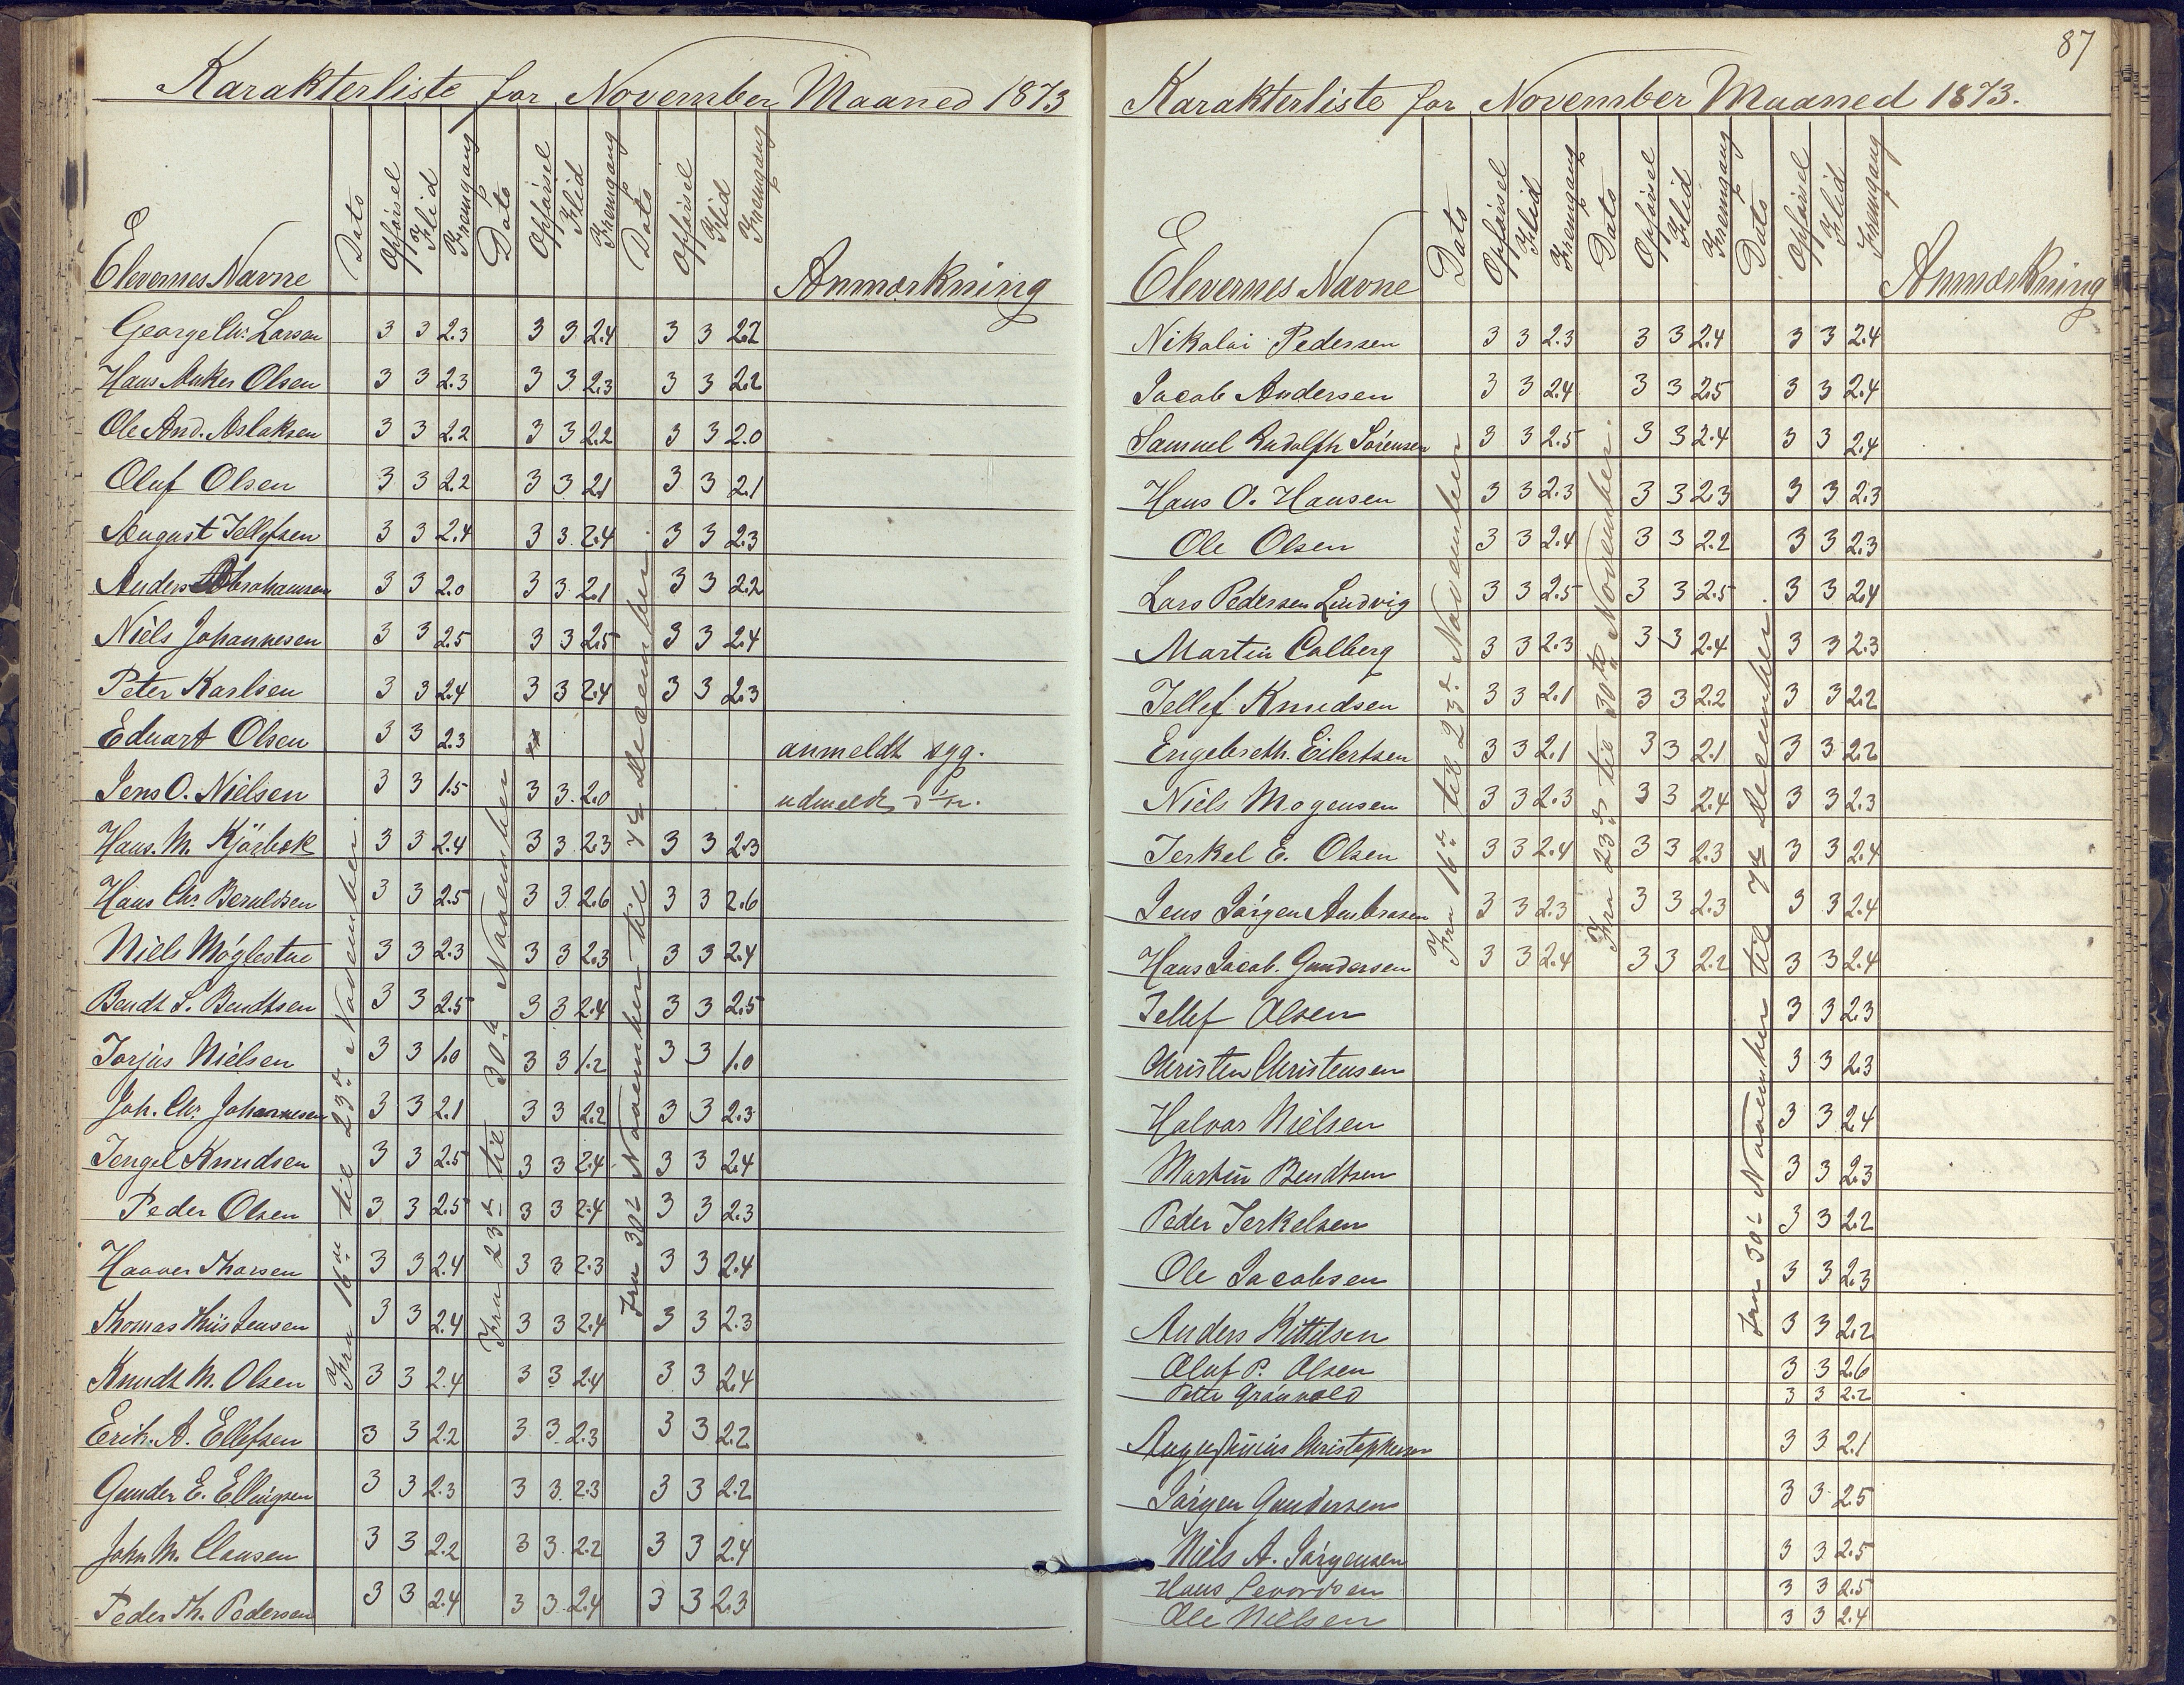 Karakterliste for November Maaned 1873
Elevernes Navne Dato Opførsel Flid Fremgang Dato Opførsel Flid Fremgang Dato Opførsel Flid Fremgang Anmærkning
Fra 16de til 23de November.
Fra 23de til 30te November
Fra 30te November til 7de December.
George Chr. Larsen 3 3 2.3 3 3 2.4 3 3 2.2
Hans Anker Olsen 3 3 2.3 3 3 2.3 3 3 2.2
Ole And. Aslaksen 3 3 2.2 3 3 2.2 3 3 2.0
Oluf Olsen 3 3 2.2 3 3 2.1 3 3 2.1
August Tellefsen 3 3 2.4 3 3 2.4 3 3 2.3
Anders Abrahamsen 3 3 2.0 3 3 2.1 3 3 2.2
Niels Johannesen 3 3 2.5 3 3 2.5 3 3 2.4
Peter Karlsen 3 3 2.4 3 3 2.4 3 3 2.3
Eduart Olsen 3 3 2.3 anmeldt syg.
Jens O. Nielsen 3 3 1.5 3 3 2.0 udmeldt
Hans. M. Kjørbek 3 3 2.4 3 3 2.3 3 3 2.3
Hans Chr. Beruldsen 3 3 2.5 3 3 2.6 3 3 2.6
Niels Møglestue 3 3 2.3 3 3 2.3 3 3 2.4
Bendt S. Bendtsen 3 3 2.5 3 3 2.4 3 3 2.5
Torjus Nielsen 3 3 1.0 3 3 1.2 3 3 1.0
Joh. Chr. Johannesen 3 3 2.1 3 3 2.2 3 3 2.3
Tengel Knudsen 3 3 2.5 3 3 2.4 3 3 2.4
Peder Olsen 3 3 2.5 3 3 2.4 3 3 2.3
Haaver Thorsen 3 3 2.4 3 3 2.3 3 3 2.4
Thomas Thiis Jensen 3 3 2.4 3 3 2.4 3 3 2.3
Knudt M. Olsen 3 3 2.4 3 3 2.4 3 3 2.4
Erik. A. Ellefsen 3 3 2.2 3 3 2.3 3 3 2.2
Gunder E. Ellingsen 3 3 2.3 3 3 2.3 3 3 2.2
John M. Clausen 3 3 2.2 3 3 2.2 3 3 2.4
Peder Th. Pedersen 3 3 2.4 3 3 2.4 3 3 2.3
87
Karakterliste for November Maaned 1873.
Elevernes Navne Dato Opførsel Flid Fremgang Dato Opførsel Flid Fremgang Dato Opførsel Flid Fremgang Anmærkning
Fra 16de til 23de November
Fra 23de til 30te November.
Fra 30te November til 7de December.
Nikolai Pedersen 3 3 2.3 3 3 2.4 3 3 2.4
Jacob Andersen 3 3 2.4 3 3 2.5 3 3 2.4
Samuel Rudolph Sørensen 3 3 2.5 3 3 2.4 3 3 2.4
Hans O. Hansen 3 3 2.3 3 3 2.3 3 3 2.3
Ole Olsen 3 3 2.4 3 3 2.2 3 3 2.3
Lars Pedersen Lindvig 3 3 2.5 3 3 2.5 3 3 2.4
Martin Calberg 3 3 2.3 3 3 2.4 3 3 2.3
Tellef Knudsen 3 3 2.1 3 3 2.2 3 3 2.2
Engebreth. Eilertsen 3 3 2.1 3 3 2.1 3 3 2.2
Niels Mogensen 3 3 2.3 3 3 2.4 3 3 2.3
Terkel E. Olsen 3 3 2.4 3 3 2.3 3 3 2.4
Jens Jørgen Ambrosen 3 3 2.3 3 3 2.3 3 3 2.4
Hans Jacob. Gundersen 3 3 2.4 3 3 2.2 3 3 2.4
Tellef Olsen 3 3 2.3
Christen Christensen 3 3 2.3
Halvor Nielsen 3 3 2.4
Martin Bendtsen 3 3 2.3
Peder Terkelsen 3 3 2.2
Ole Jacobsen 3 3 2.3
Anders Kittilsen 3 3 2.2
Oluf P. Olsen 3 3 2.6
Peter Grünvold 3 3 2.2
Augustinius Christophersen 3 3 2.1
Jørgen Gundersen 3 3 2.5
Niels A. Jørgensen 3 3 2.5
Hans Levordsen 3 3 2.5
Ole Nielsen 3 3 2.4